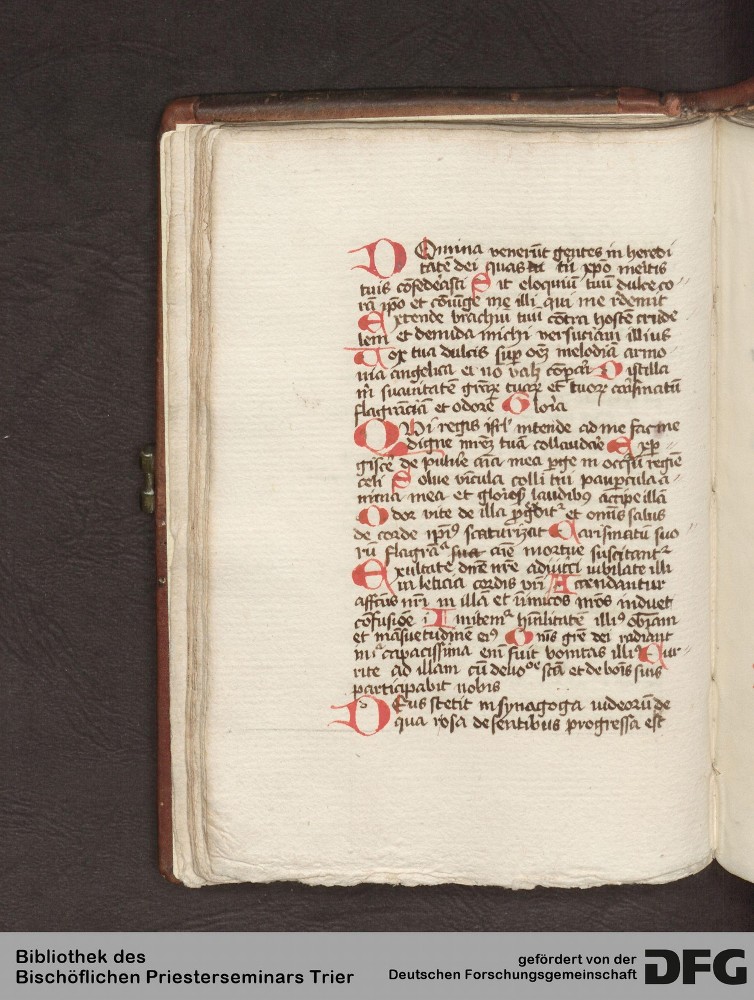 DOmina venerūt gentes in heredi
tatē dei quas tu xp̄o meritis
tuis cōfederasti Sit eloquiū tuū dulce co
rā ip̄o et cōiūge me illi qui me redemit
Extende brachiū tuū cōtra hostē crude
lem et denuda michi versuciam illius
Vox tua dulcis sup̄ oēm melodiā armo
nia angelica ei nō valȝ cōpari Distilla
suauitatē tuaꝝ et tuoꝝ carismatū
flagranciā et odorē Gloria
QVi regis isrl̄ intende ad me fac me
digne mrēȝ tuā collaudare Exp̄
giscere de puluere aīa mea p̄ge in occursū regīe
celi Solue vincula colli tui paupercula a
nima mea et gloriosis laudibꝰ accipe illā
Odor vite de illa et omīs salus
de corde ipīꝰ scaturizat Carismatū suo
rū aīe mortue suscitant
Exultate dnē nrē adiutrici iubilate illi
in leticia cordis vr̄i Accendantur
affc̄us nr̄i in illā et inimicos nr̄os induet
cōfusiōe Imitem̄ humilitatē illiꝰ
et māsuetudinē eiꝰ Om̄is grē dei radiant
capacissima enī fuit bonitas illiꝰ Cur
rite ad illam cū deuoōe scā et de bōis suis
participabit nobis
DEus stetit in synagoga iudeorū de
qua rosa de sentibus progressa est
Bibliothek des
Bischöflichen Priesterseminars Trier
gefördert von der
Deutschen Forschungsgemeinschaft
DFG